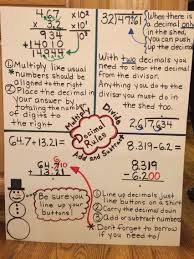 4.67 x10²
x 3.2 x10¹
934
+14010
14.944
① Multiply like
usual numbers
should be aligned
to the right
② Place the decimal in
your answer by
totaling the number
of digits to
the right
32)47.61
When there's
a decimal only
in the shed,
you can push
up the decimal
With two decimals
you need to clear
the decimal from
the divisor.
Anything you do to the
divisor you must do in
the shed too.
2.6)7.634
Multiply
Divide
Decimal
Rules
Add and Subtract
64.7+13.21=
64.70
+13.21
Be sure you
line up your
buttons!
8.319-6.2=
8.319
-6.200
① Line up decimals just
like buttons on a shirt
② Carry the decimal down
③ Add or subtract
* Don't forget to borrow
if you need to!